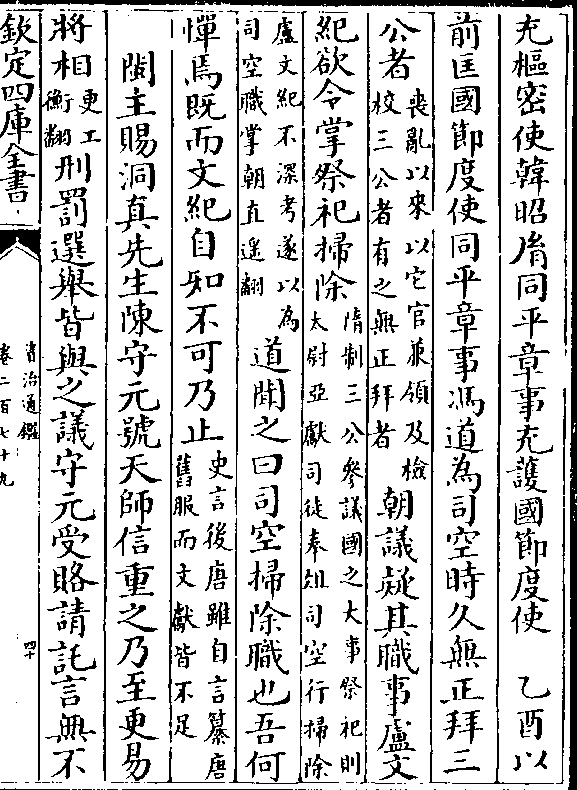 充樞密使韓昭胤同平章事充護國節度使　乙酉以
前匡國節度使同平章事馮道為司空時久無正拜三
公者喪亂以來以它官兼領及檢校三公者有之無正拜者朝議疑其職事盧文
紀欲令掌祭祀掃除隋制三公參議國之大事祭祀則太尉亞獻司徒奉俎司空行掃除
盧文紀不深考遂以為司空職掌朝直遥翻道聞之曰司空掃除職也吾何
憚焉既而文紀自知不可乃止史言後唐雖自言纂唐舊服而文獻皆不足
閩主賜洞真先生陳守元號天師信重之乃至更易
將相更工衡翻刑罰選舉皆與之議守元受賂請託言無不
欽定四庫全書
資治通鑑
卷二百七十九
四十